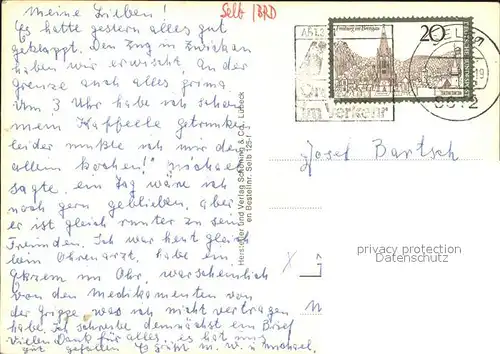 Selb /BRD
Meine Lieben!
Es hatte gestern alles gut
geklappt. Den Zug in Zwickau
haben wir erwischt, an der
grenze auch alles prima.
Um 3 Uhr habe ich schon
mein Kaffelle getrunken
leider mußte ich mir den
allein kochen! Michael
sagte, ein Tag wäre ich
noch gern geblieben, aber
er ist gleich runter zu seinen
Freunden. Ich war heut gleich
beim Ohrenarzt, habe ein
Ekzem im Ohr, warscheinlich
von den Medikamenten von
der Grippe, was ich nicht vertragen
habe. Ich schreibe demnächst ein Brief
Vielen Dank für alles, es hat uns
gut gefallen Es grüßt M. u. Michael
Hersteller und Verlag Schöning & Co., Lübeck
Bestellnr. Selb 125
Freiburg im Breisgau
20
SELB
im Verkehr
Josef Bartsch
privacy protection
Datenschutz